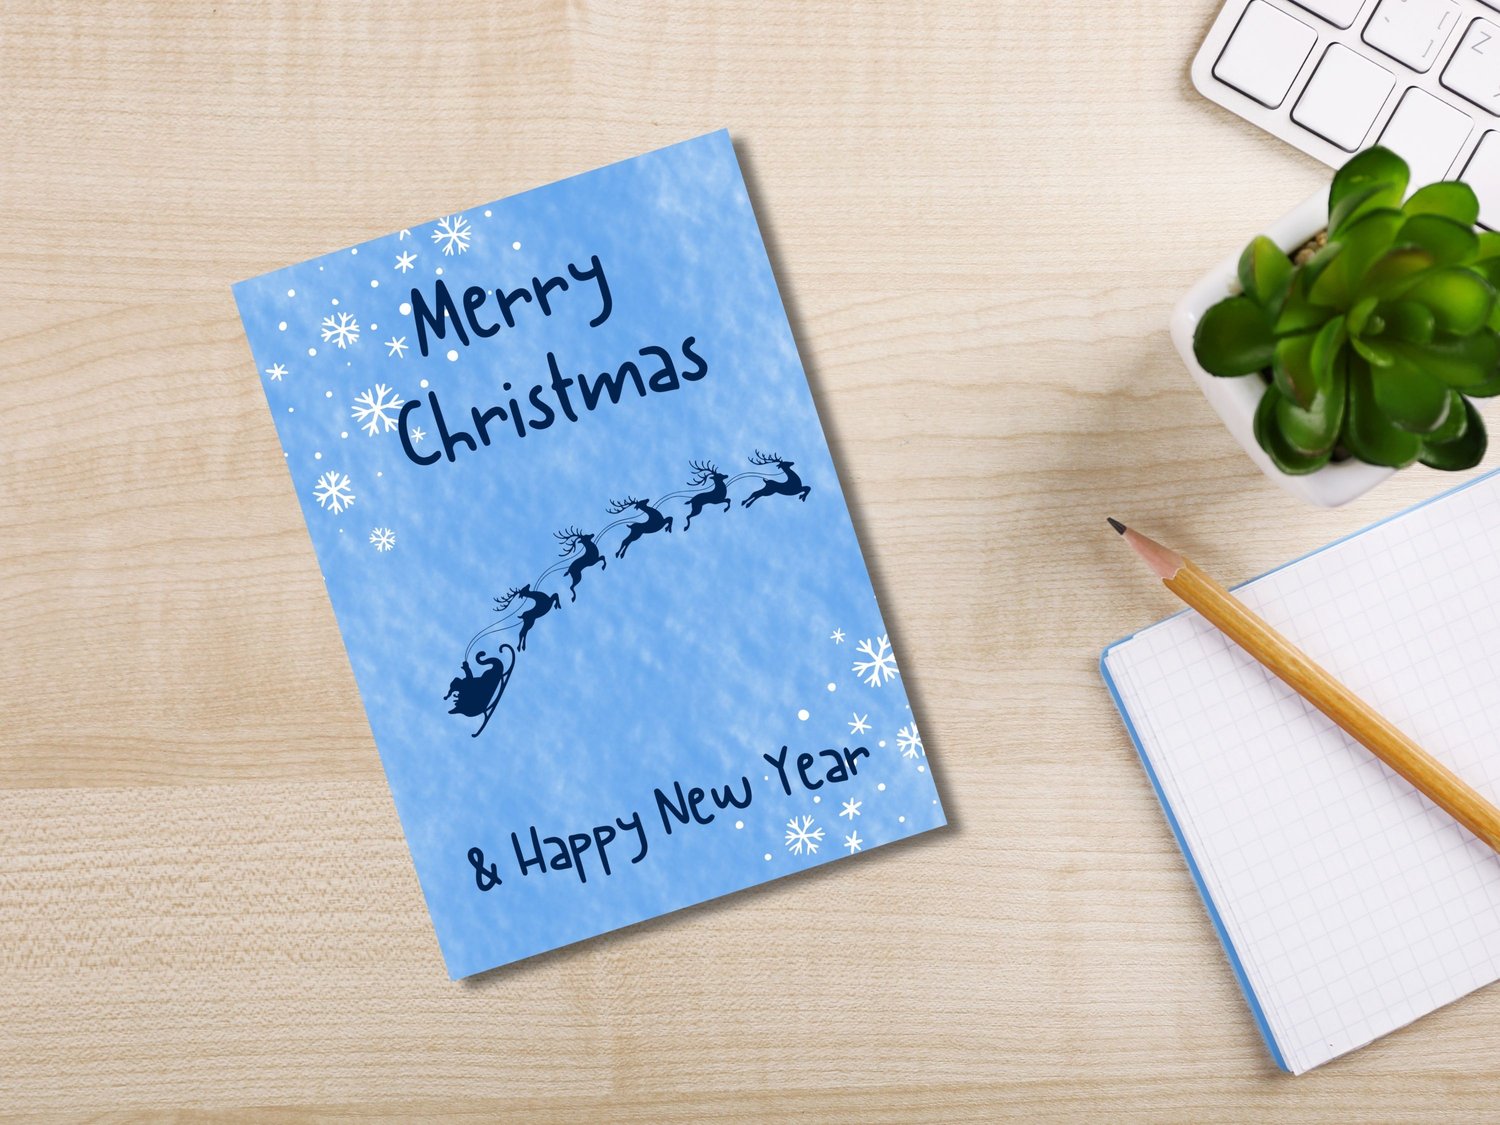 Merry
Christmas
& Happy New Year
Z